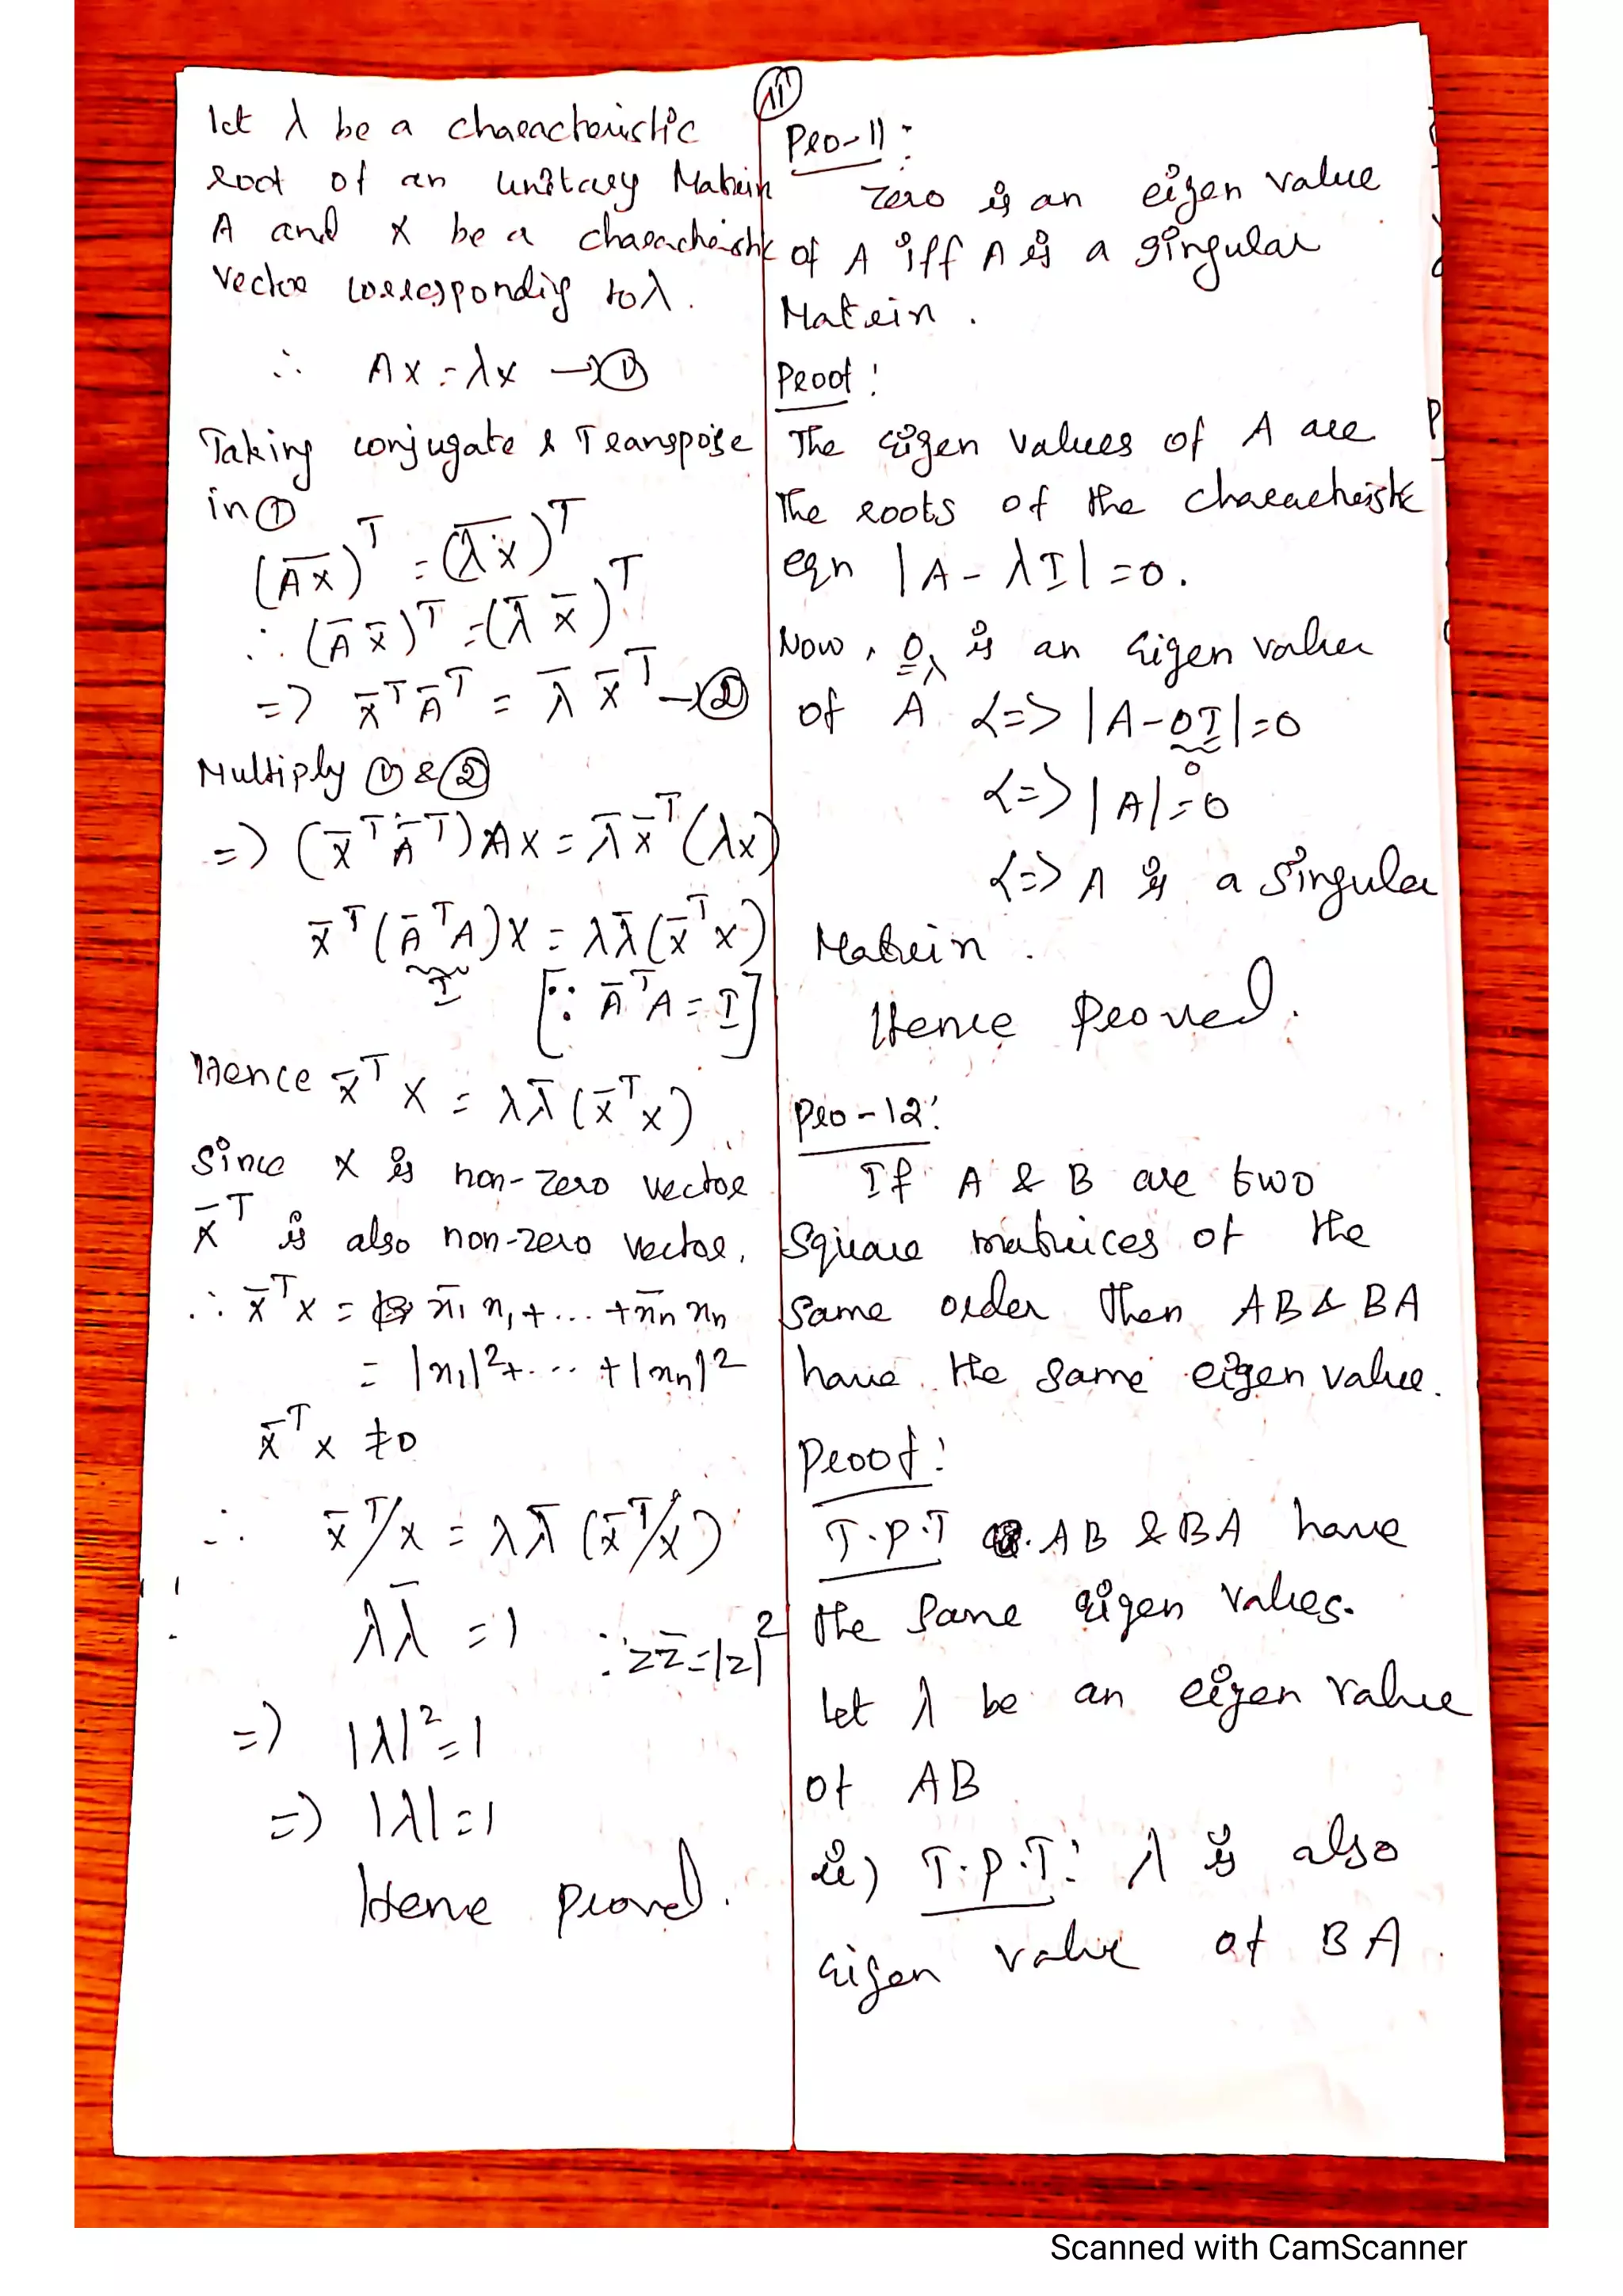 11
let λ be a characteristic
root of an unitary Matrix
A and X be a characteristic
vector corresponding to λ.
∴ AX = λX → ①
Taking conjugate & Transpose
in ①
(A̅X̅)ᵀ = (λ̅X̅)ᵀ
∴ (A̅ X̅)ᵀ = (λ̅ X̅)ᵀ
=> X̅ᵀ A̅ᵀ = λ̅ X̅ᵀ → ②
Multiply ① & ②
=> (X̅ᵀ A̅ᵀ) AX = λ̅ X̅ᵀ (λX)
X̅ᵀ (A̅ᵀA) X = λλ̅ (X̅ᵀ X)
I [∵ A̅ᵀA = I]
Hence X̅ᵀ X = λλ̅ (X̅ᵀ X)
Since X is non-zero vector
X̅ᵀ is also non-zero vector.
∴ X̅ᵀX = x̅₁ x₁ + ... + x̅n xn
= |x₁|² + ... + |xn|²
X̅ᵀ X ≠ 0
∴ X̅ᵀX = λλ̅ (X̅ᵀX)
λλ̅ = 1 ∵ zz̅ = |z|²
=> |λ|² = 1
=> |λ| = 1
Hence proved.
Pro-11:
Zero is an eigen value
of A iff A is a singular
Matrix.
Proof:
The eigen values of A are
The roots of the characteristic
eqn |A - λI| = 0.
Now, 0 λ is an eigen value
of A <=> |A - 0I| = 0
0
<=> |A| = 0
<=> A is a Singular
Matrix.
Hence proved.
Pro-12:
If A & B are two
Square matrices of the
Same order then AB & BA
have the same eigen value.
Proof:
T.P.T AB & BA have
the same eigen values.
let λ be an eigen value
of AB
ie) T.P.T: λ is also
eigen value of BA.
Scanned with CamScanner